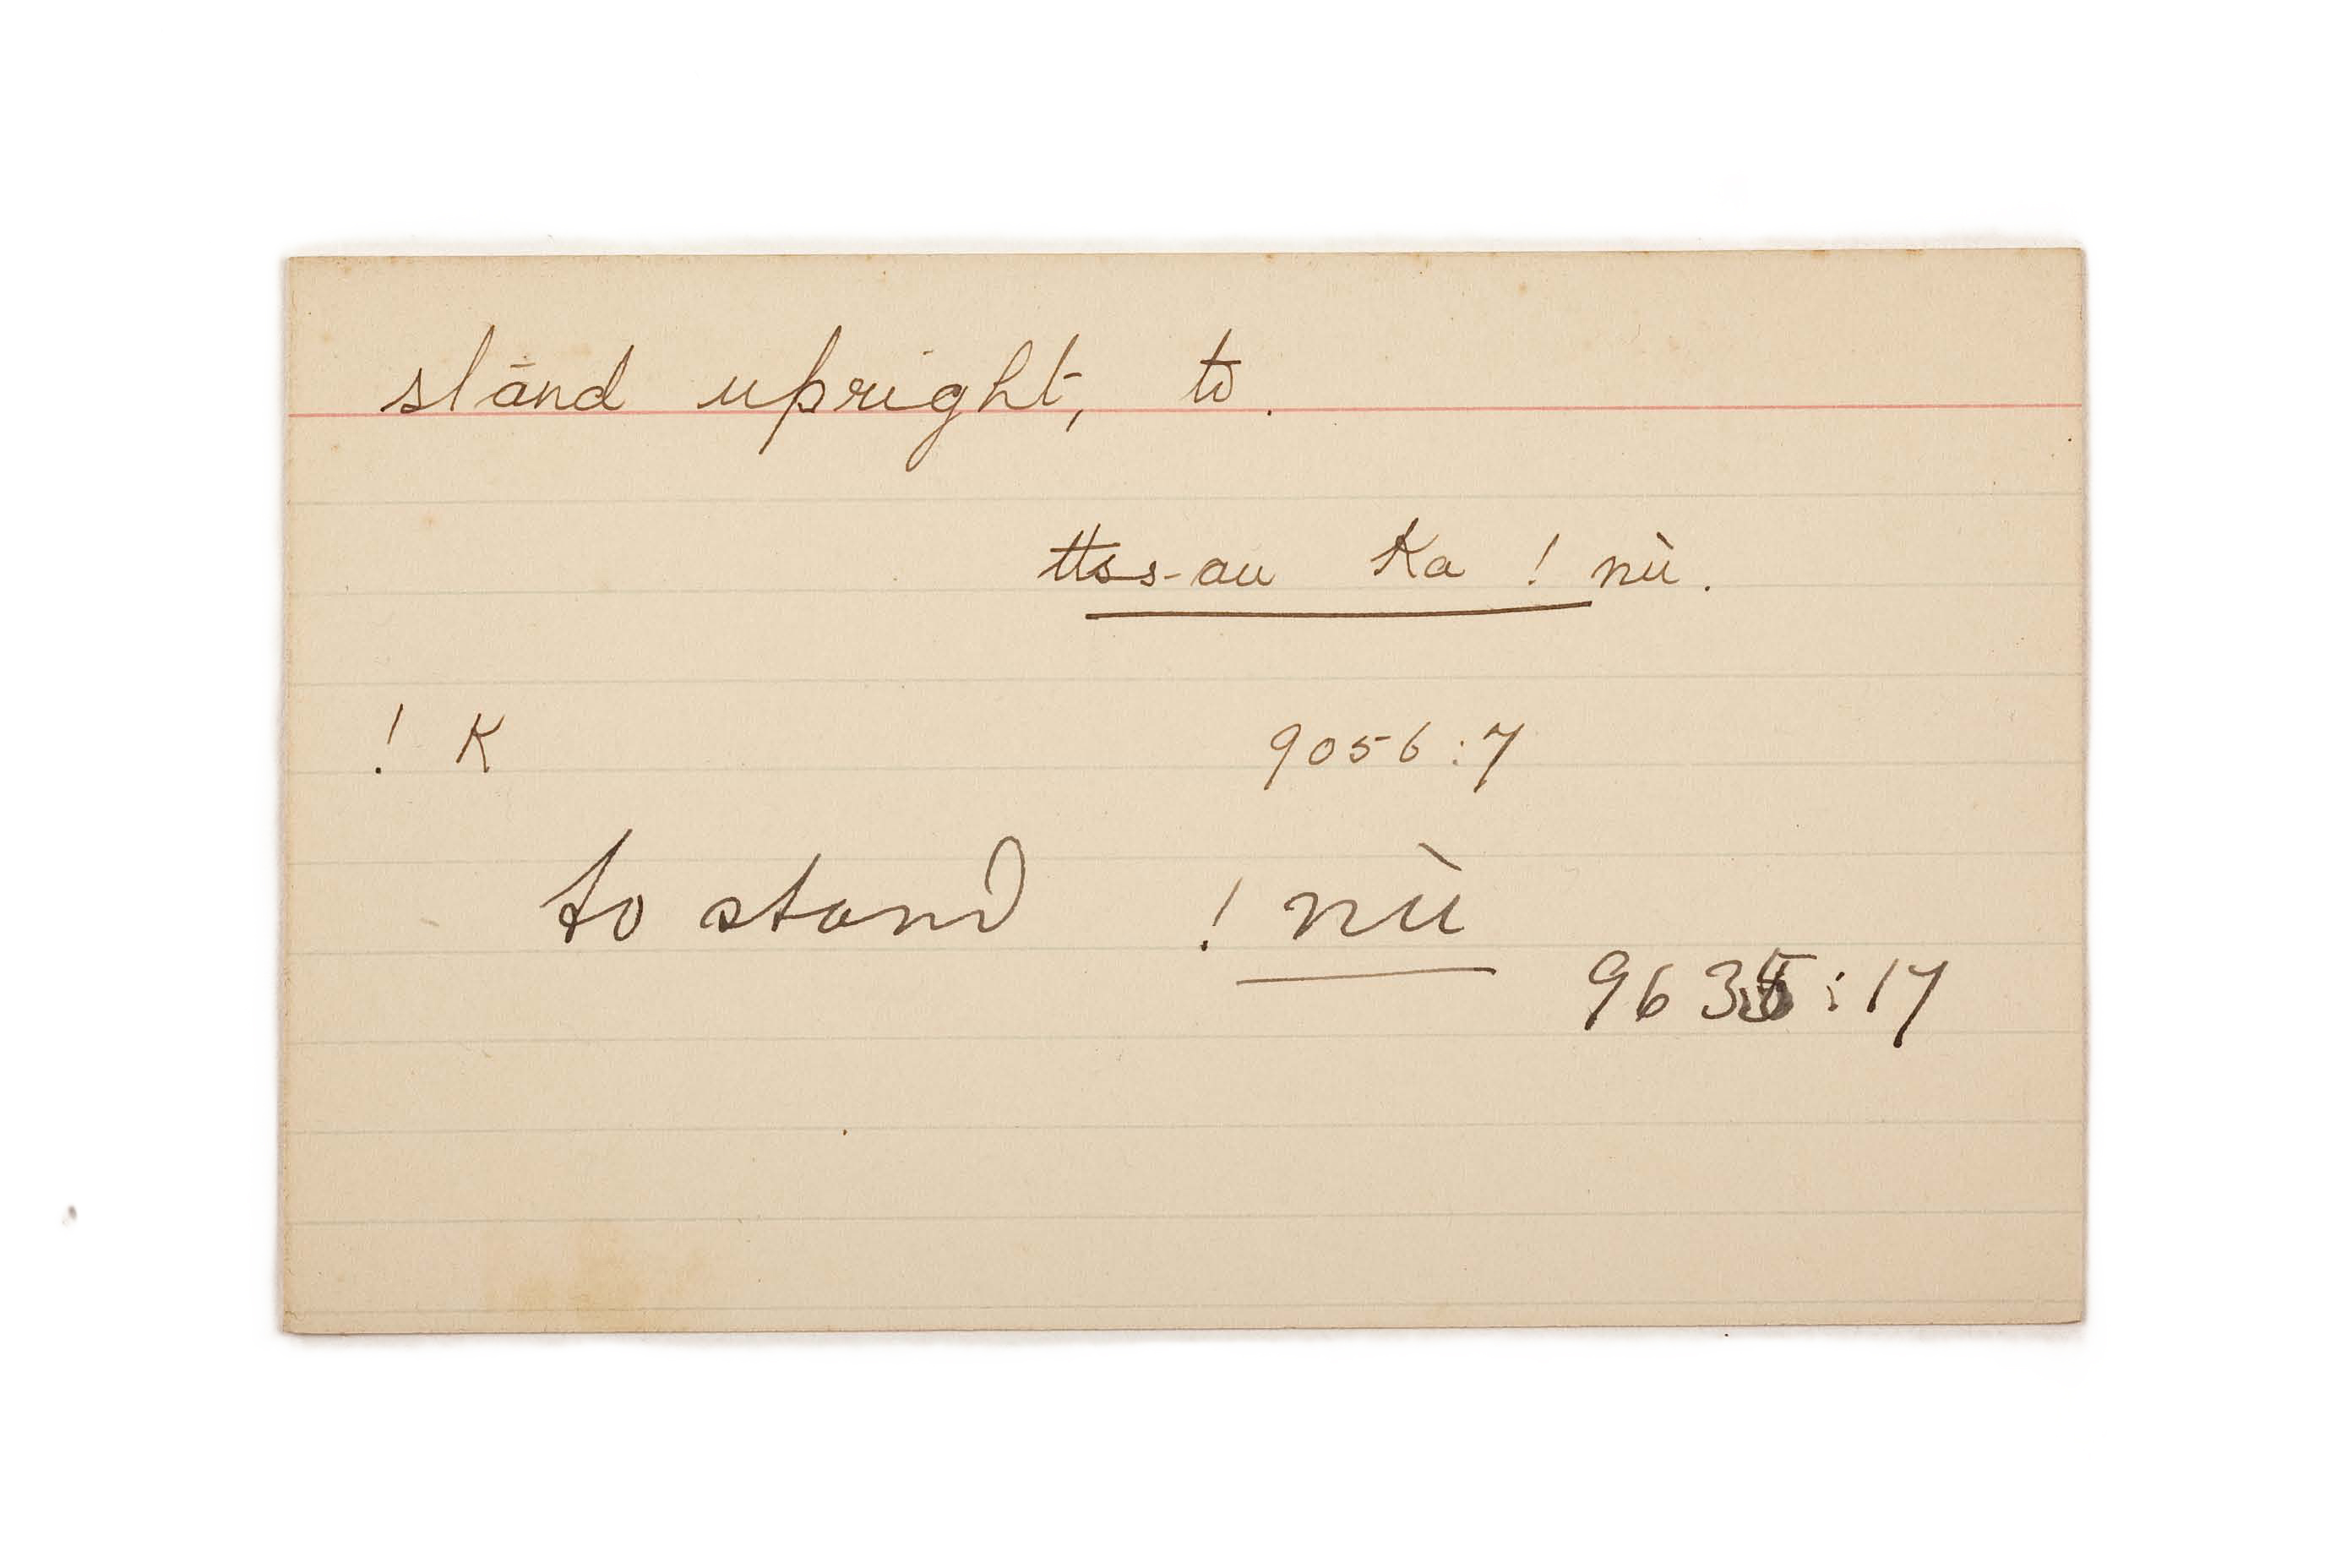 stand upright, to.
ttss-au ka ! nù.
! K 9056:7
to stand ! nù
9635:17